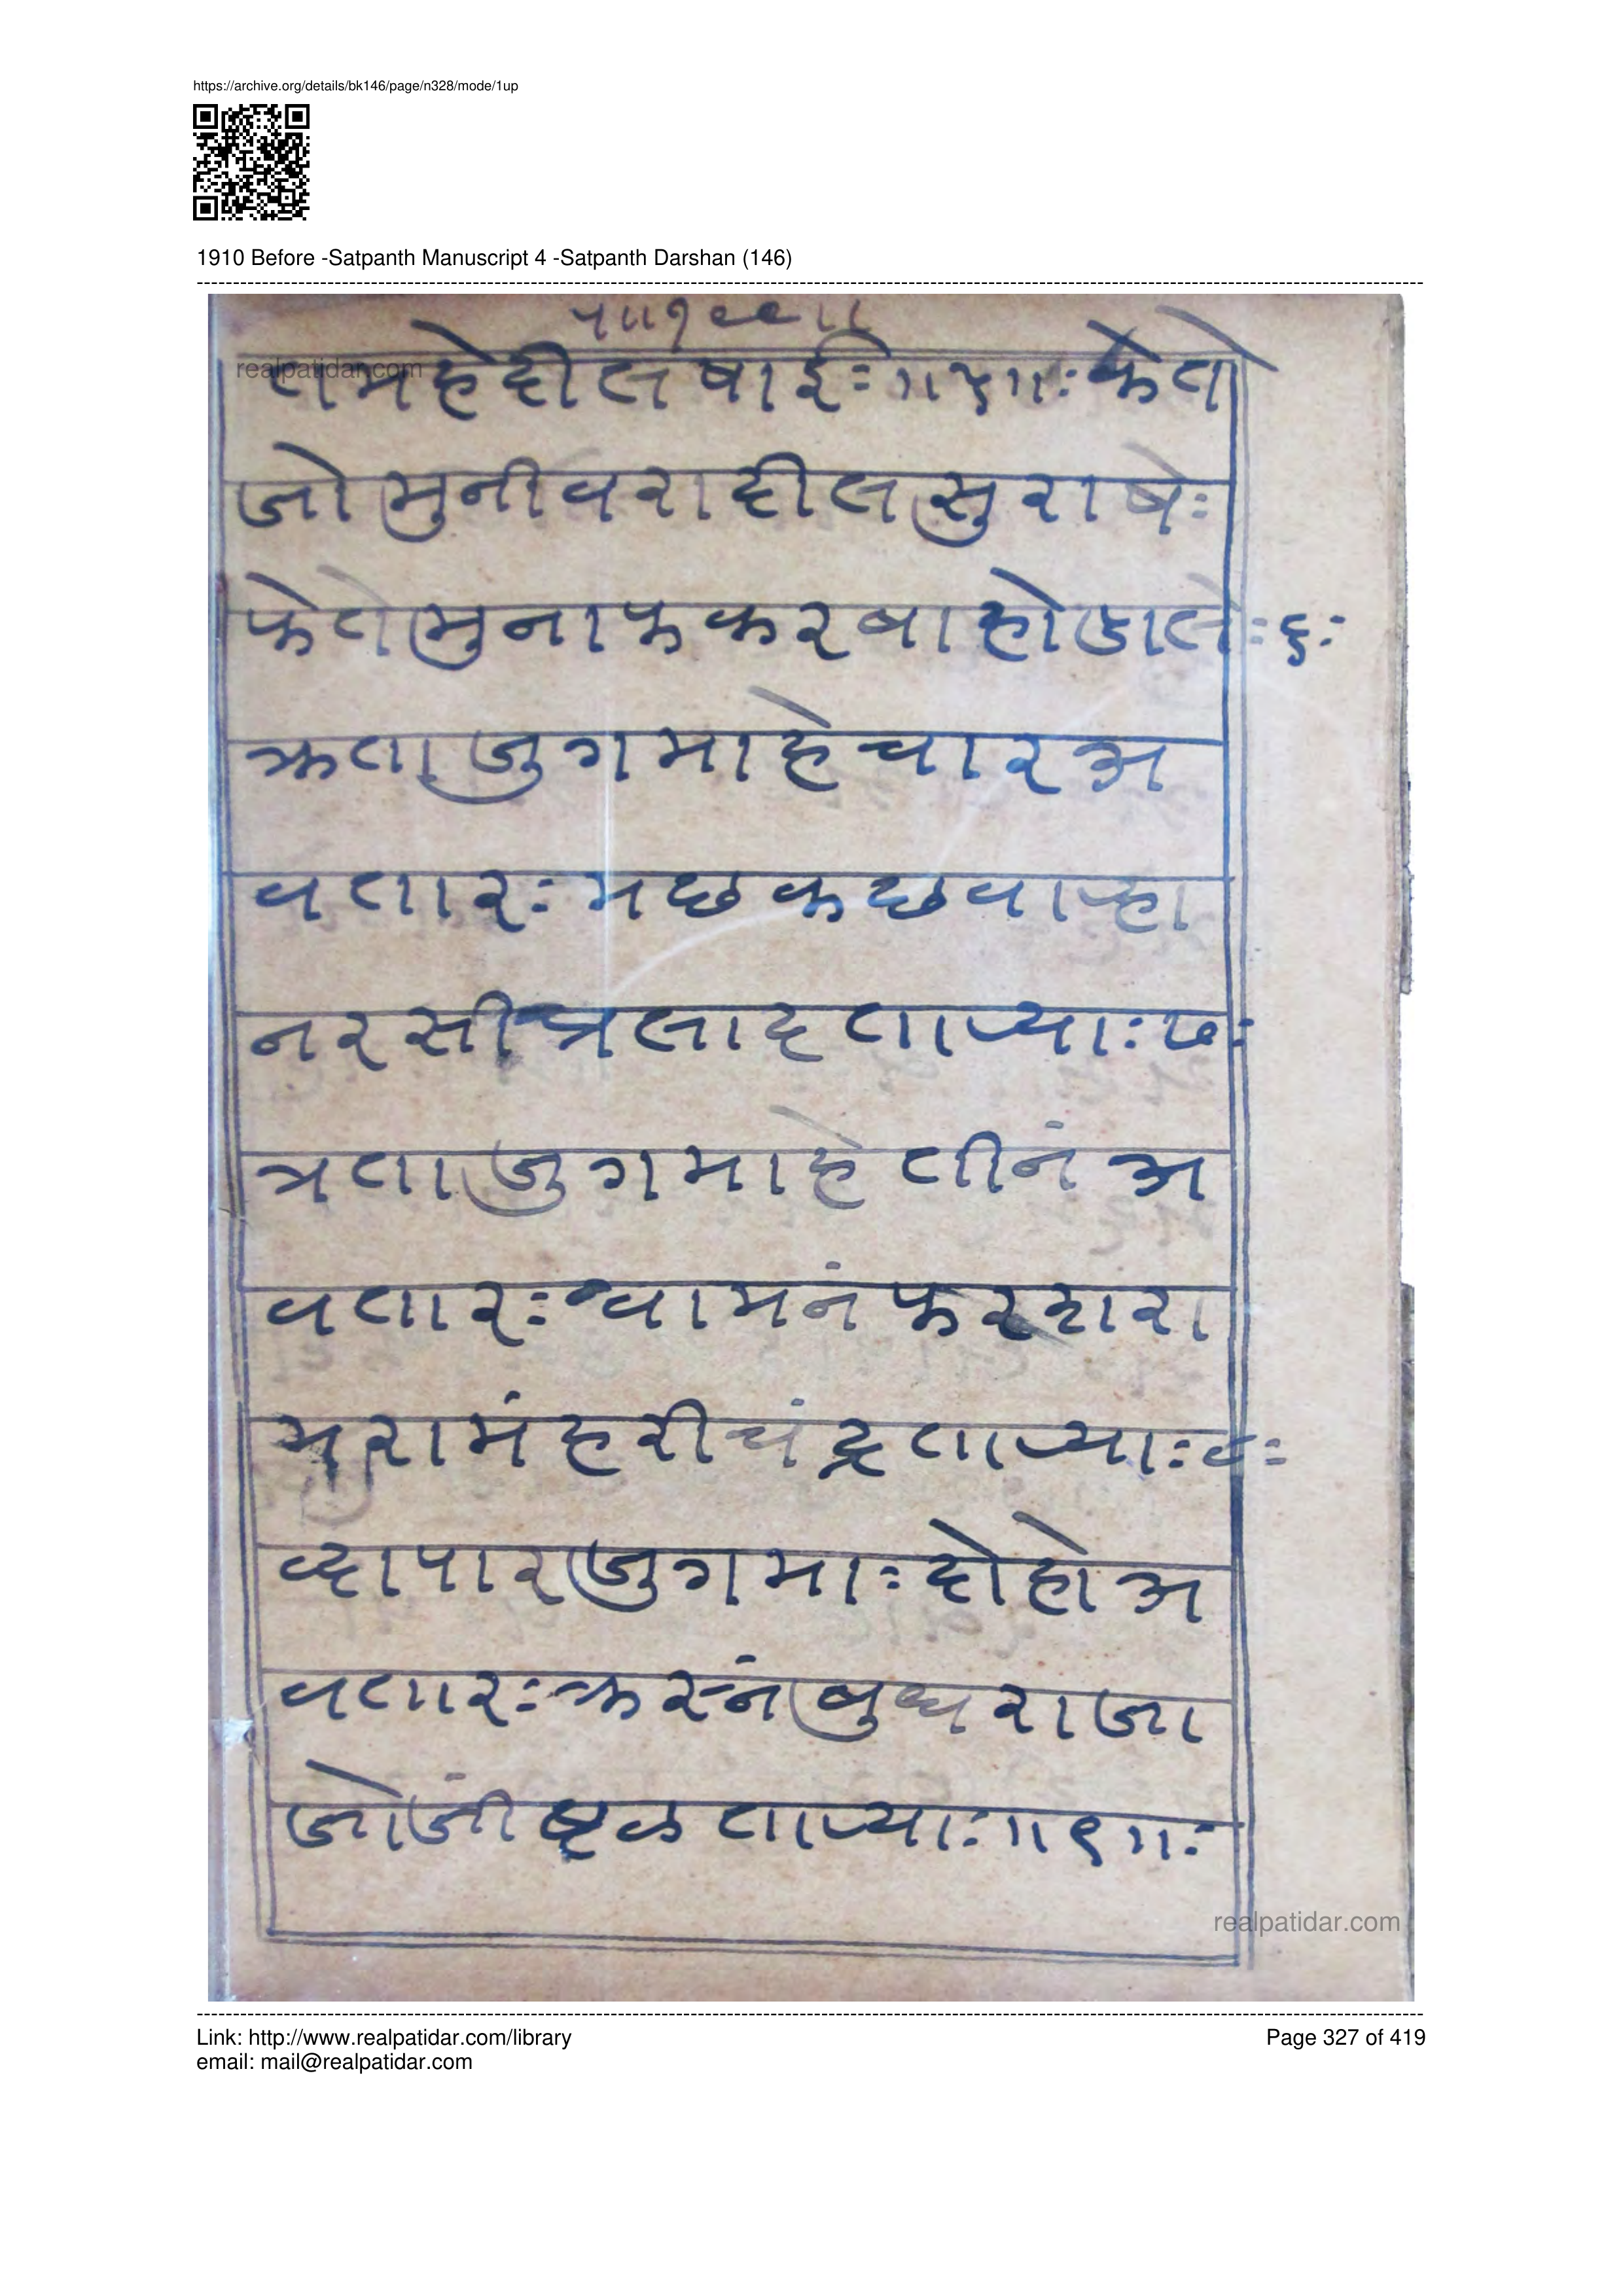 https://archive.org/details/bk146/page/n328/mode/1up
1910 Before -Satpanth Manuscript 4 -Satpanth Darshan (146)
realpatidar.com
तमहे दील षाई ः॥५॥ः केत
जो मुनीवरा दील सु राषेः
फेते मुनाफ करबा हो
जुग माहे चार अ
वतारः मछ कछ वाऱ्हा
नरसी प्रलाद ताऱ्याः ७ः
त्रता जुग माहे तीनं अ
वतारः वामनं फर
रामं हरीचंद्र ताऱ्याः ८ः
जुग माः दोहो अ
वतारः बुध राजा
ताऱ्याः॥९॥ः
realpatidar.com
Link: http://www.realpatidar.com/library
Page 327 of 419
email: mail@realpatidar.com